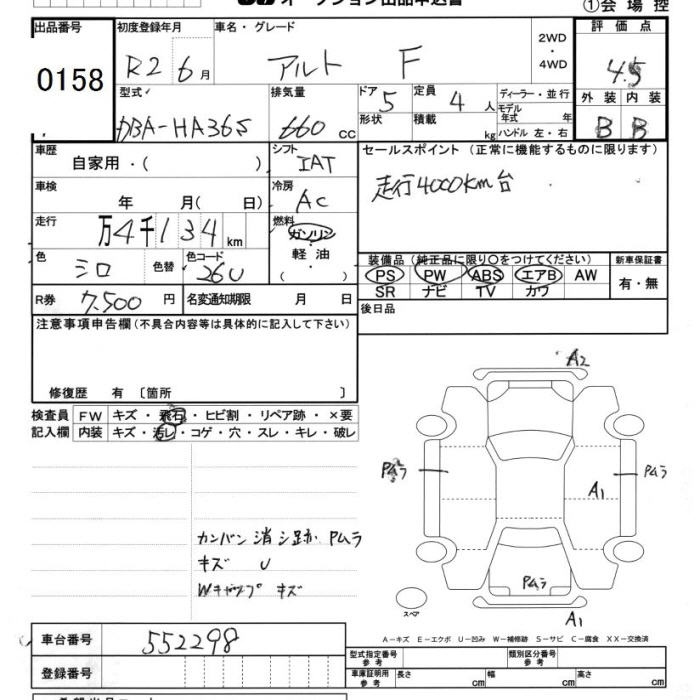 オークション出品申込書
①会場控
出品番号 初度登録年月 車名・グレード 2WD・4WD 評価点
0158 R2 6月 アルト F 4.5
型式 排気量 ドア 定員 ディーラー・並行 外装 内装
DBA-HA36S 660 cc 5 4人 モデル年式 年 B B
形状 積載 kg ハンドル 左・右
車歴 シフト セールスポイント (正常に機能するものに限ります)
自家用・( ) IAT
走行4000km台
車検 冷房
年 月( 日) AC
走行 燃料
万4千134km ガソリン・軽油・( )
色 色替 色コード 装備品 (純正品に限り○をつけてください) 新車保証書
シロ 26U PS PW ABS エアB AW 有・無
SR ナビ TV カワ
R券 7,500円 名変通知期限 月 日
後日品
注意事項申告欄 (不具合内容等は具体的に記入して下さい)
修復歴 有 〔箇所 〕
検査員 FW キズ・飛石・ヒビ割・リペア跡・×要
記入欄 内装 キズ・汚レ・コゲ・穴・スレ・キレ・破レ
A2
Pムラ
Pムラ
A1
Pムラ
A1
スペア
カンバン消シ跡 Pムラ
キズ U
Wキャップ キズ
A-キズ E-エクボ U-凹み W-補修跡 S-サビ C-腐食 XX-交換済
車台番号 552298
型式指定番号 参考 類別区分番号 参考
登録番号
車庫証明用 参考 長さ cm 幅 cm 高さ cm